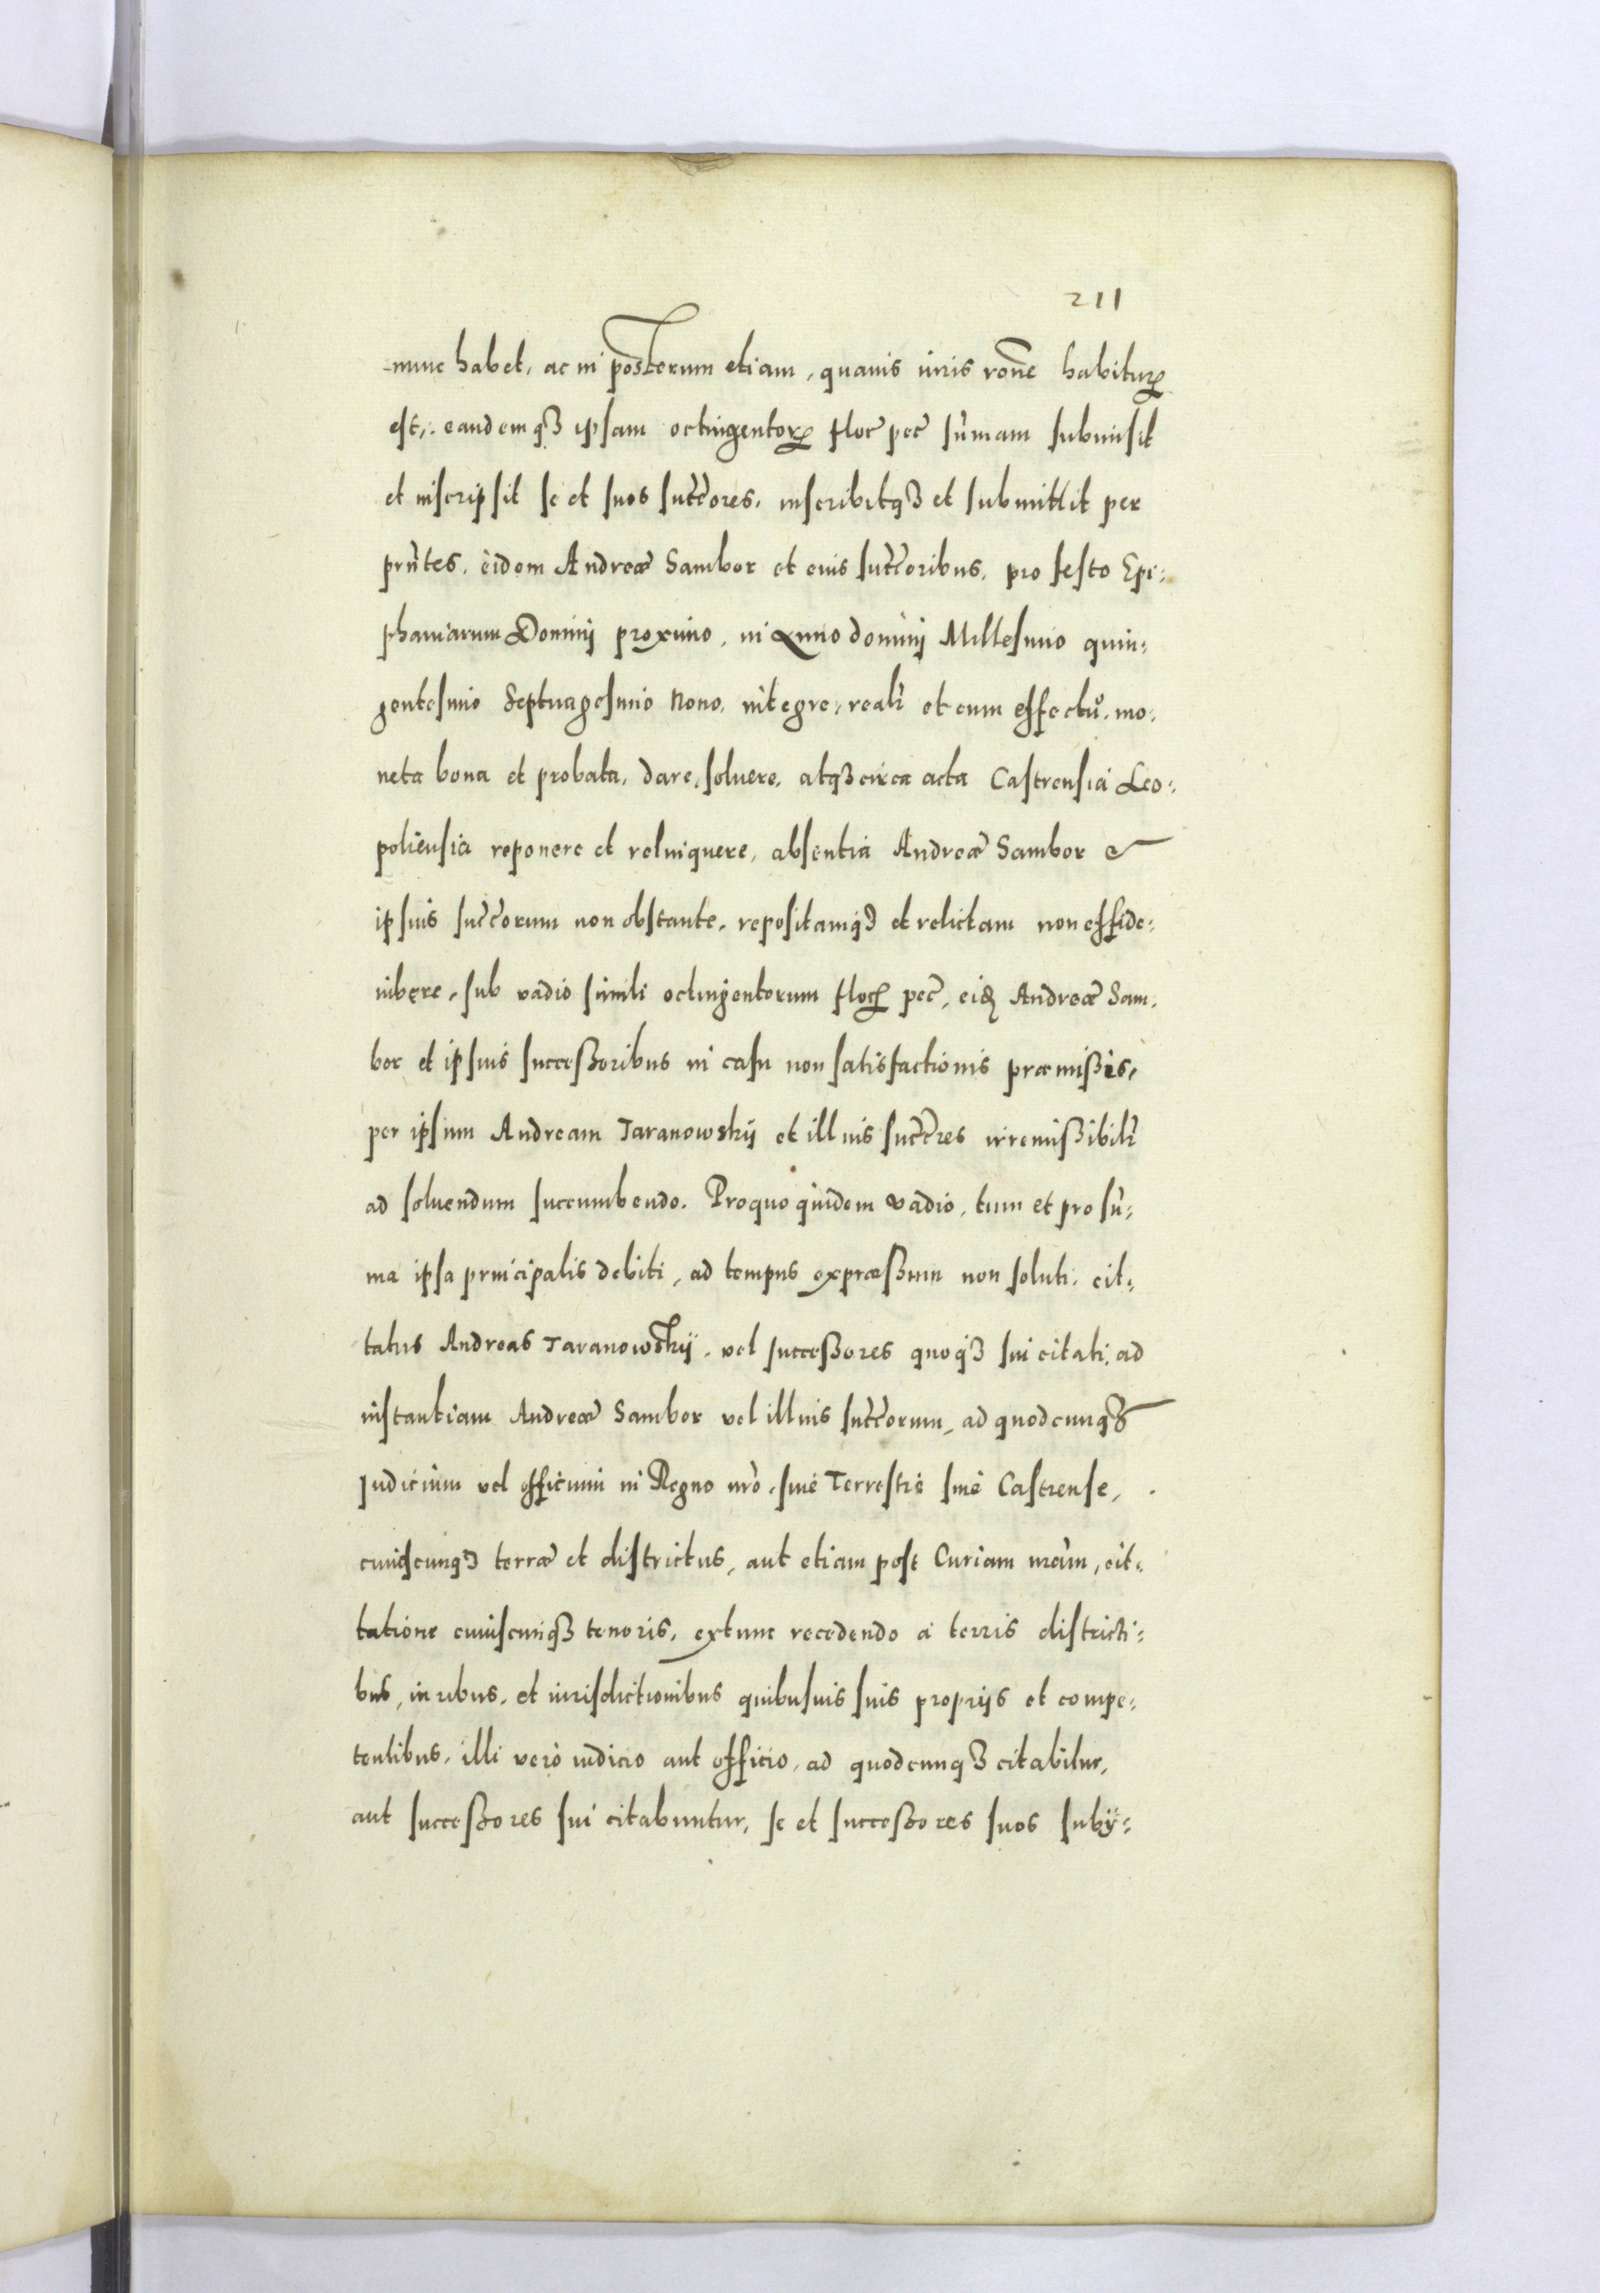 211
nunc habet, ac in posterum etiam, quauis iuris ro͠ne habiturꝫ
est, eandemqꝫ ipsam octingentorꝝ floꝛ pec̃ sũmam submisit
et inscripsit se et suos succ̃ores, inscribitqꝫ et submittit per
pñtes, eidem Andreæ Sambor et eius succ̃oribus, pro festo Epi:
phaniarum Dominij proximo, in Anno dominij Millesimo quin:
gentesimo Septuagesimo Nono, integre, realr̃ et cum effectu, mo:
neta bona et probata, dare, soluere, atqꝫ circa acta Castrensia Leo:
poliensia reponere et relinquere, absentia Andreæ Sambor &
ipsius succ̃orum non obstante, repositamqꝫ et relictam non
inbere, sub vadio simili octingentorum floꝝ pec̃, eidꝫ Andreæ Sam:
bor et ipsius successoribus in casu non satisfactionis præmissis,
per ipsum Andream Taranowskij et illius succ̃res irremissibilr̃
ad soluendum succumbendo. Pro quo quidem vadio, tum et pro sũ:
ma ipsa principalis debiti, ad tempus expræssum non soluti, cit:
tatus Andreas Taranowskij, vel successores quoqꝫ sui citati, ad
instantiam Andreæ Sambor vel illius succ̃orum, ad quodcunqꝫ
Iudicium vel officium in Regno nr̃o, siue Terrestre siue Castrense,
cuiuscunqꝫ terræ et districtus, aut etiam post Curiam nr̃am, cit:
tatione cuiuscunqꝫ tenoris, extunc recedendo a terris districti:
bus, iuribus, et iurisdictionibus quibusuis suis proprijs et compe:
tentibus, illi vero iudicio aut officio, ad quodcunqꝫ citabitur,
aut successores sui citabuntur, se et successores suos subij: